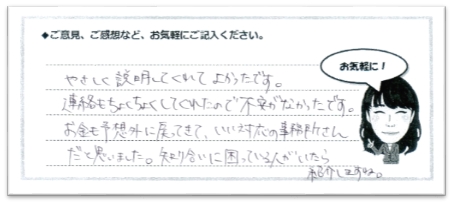 ◆ご意見、ご感想など、お気軽にご記入ください。
お気軽に！
やさしく説明してくれてよかったです。
連絡もちょくちょくしてくれたので不安がなかったです。
お金も予想外に戻ってきて、いい対応の事務所さん
だと思いました。知り合いに困っている人がいたら
紹介しますね。